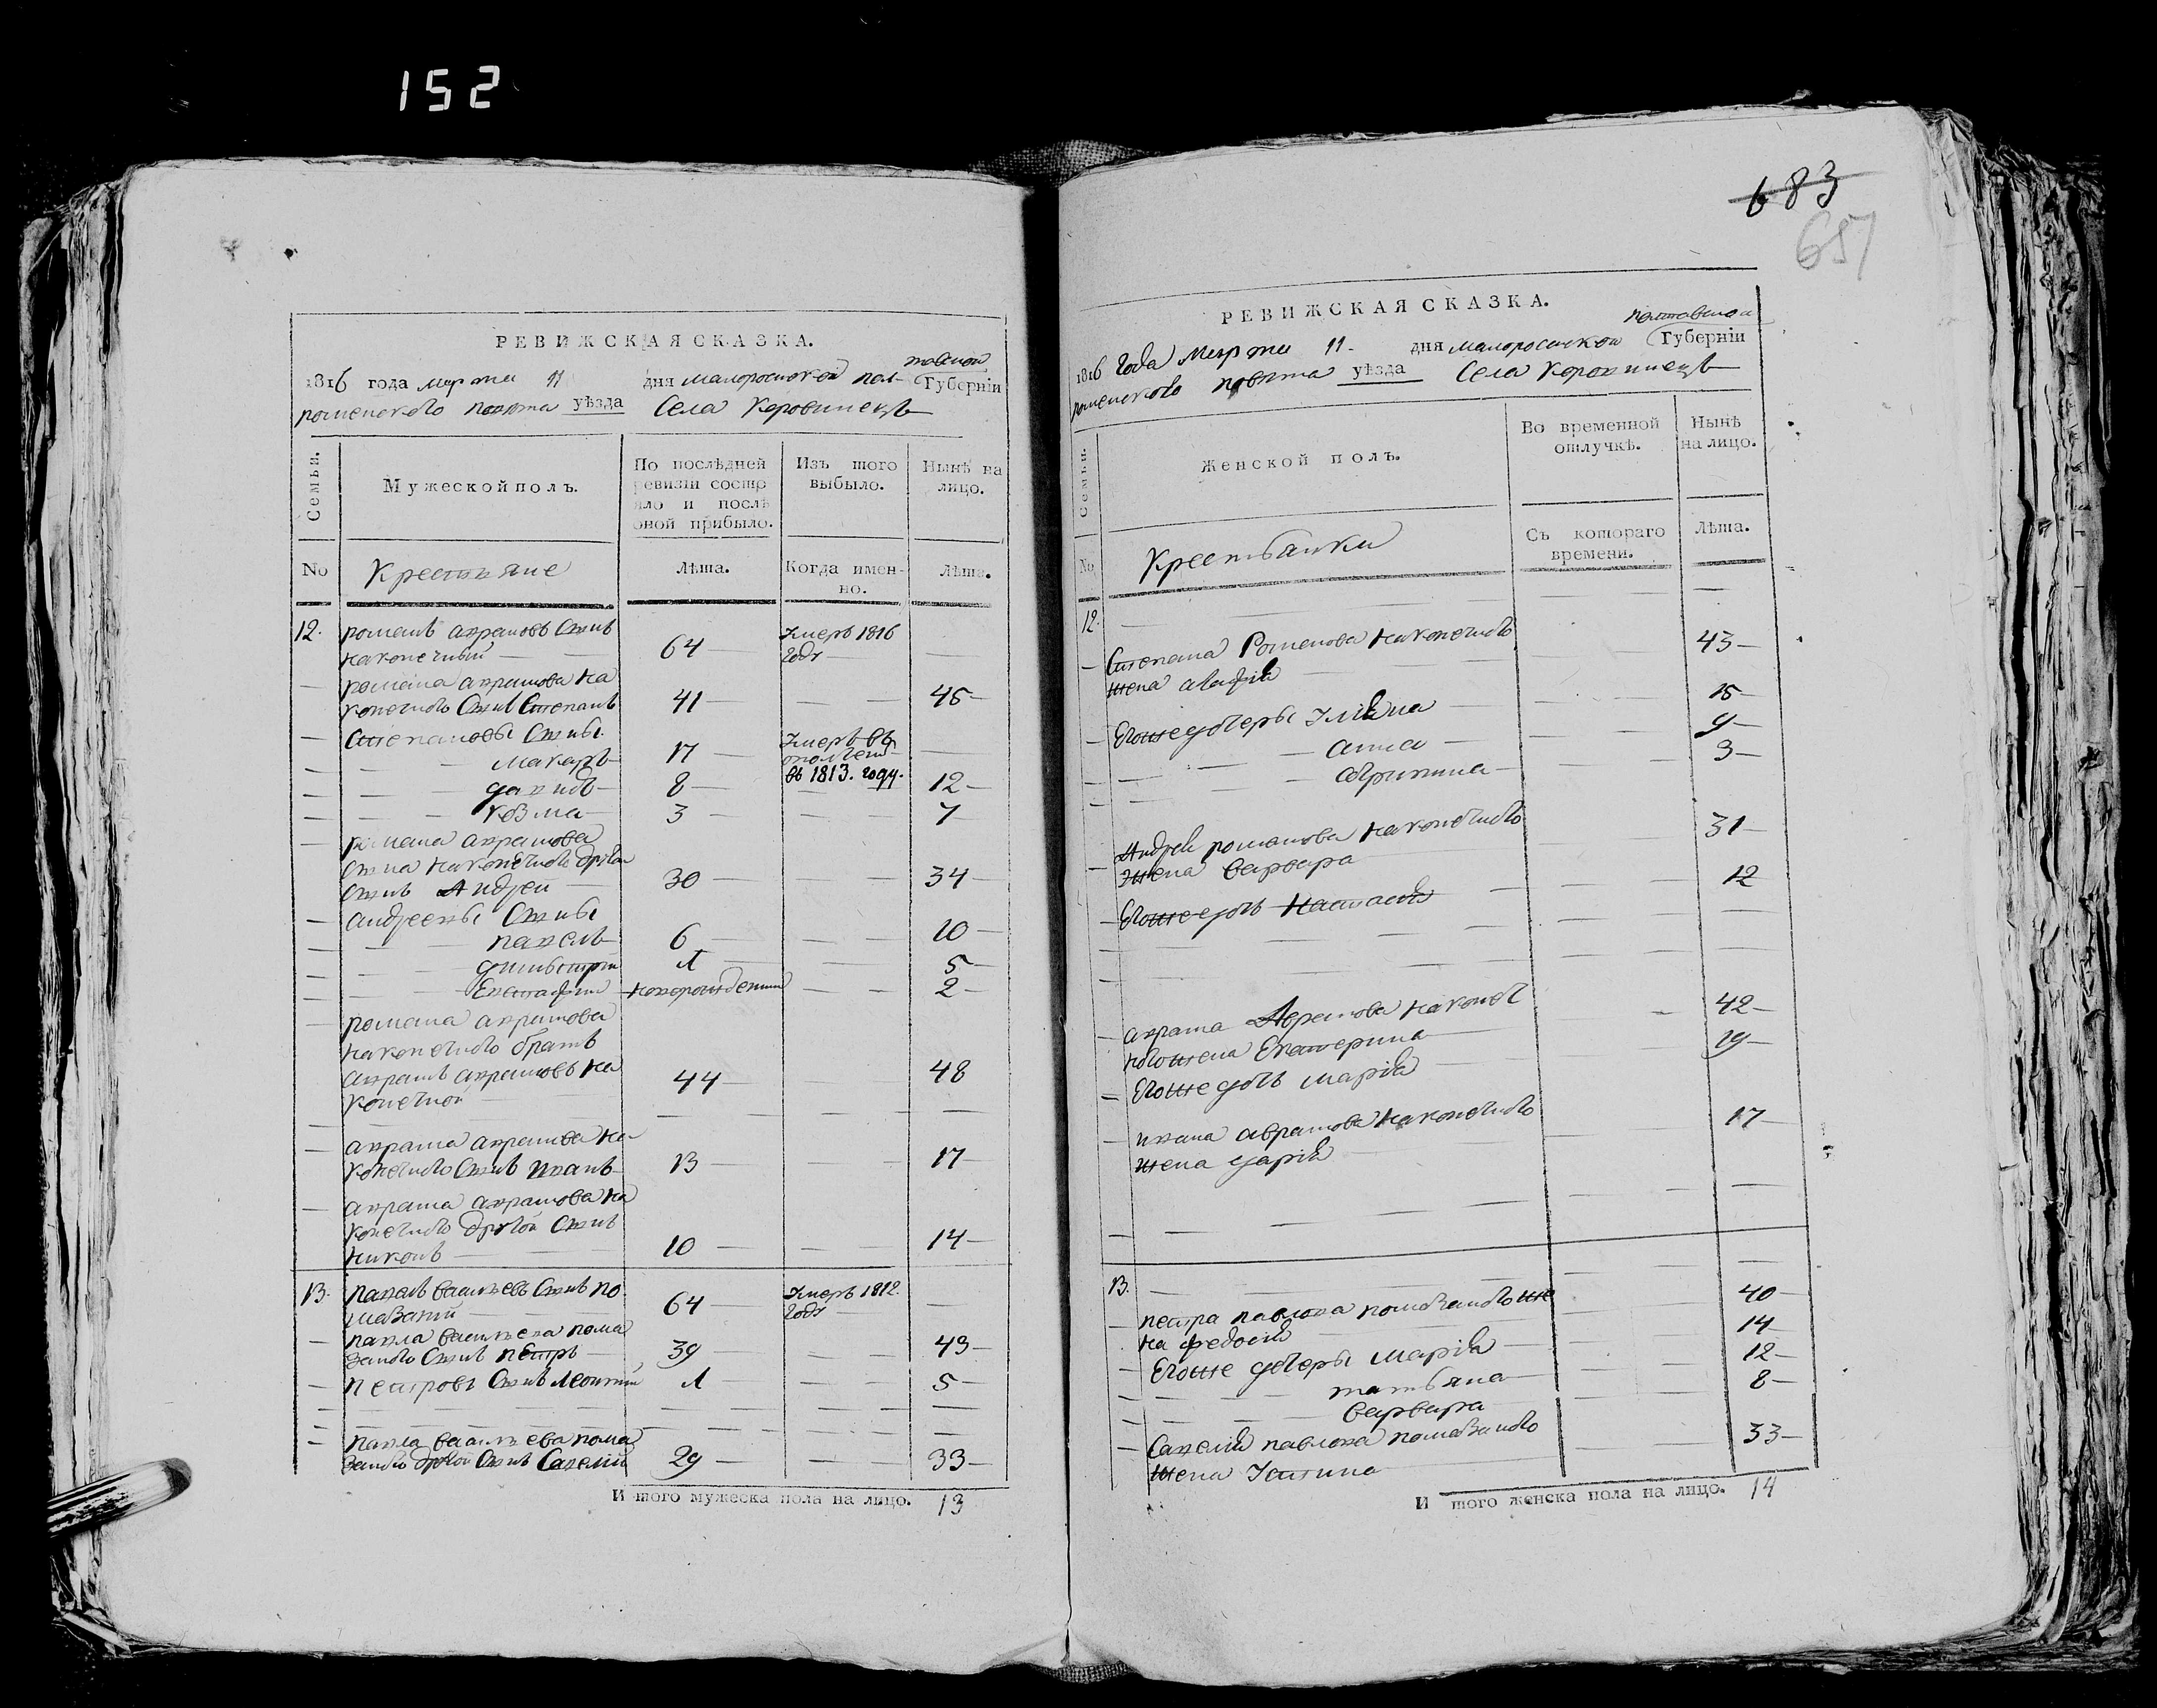 152
683
657
РЕВИЖСКАЯ СКАЗКА.
1816 года марта 11 дня малоросиской пол-тавской Губерніи
роменского повѣта уѣзда Села Коровинецъ
Семьи.
Мужеской полъ.
По послѣдней ревизіи состояло и послѣ оной прибыло.
Изъ того выбыло.
Нынѣ на лицо.
No Крестьяне Лѣта. Когда именно. Лѣта.
12. романъ аврамовъ Сынъ
наконечный 64 Умеръ 1816 годꙋ
романа аврамова на
конечного Сынъ Степанъ 41 45
Степановы Сыны
макаръ 17 Умеръ въ ополчении въ 1813. году.
давидъ 8 12
козма 3 7
романа аврамова
Сына наконечного другой
Сынъ Андрей 30 34
андреевы Сыны
павелъ 6 10
димитрий 1 5
Евстафий новорожденний 2
романа аврамова
наконечного братъ
аврамъ аврамовъ на
конечной 44 48
аврама аврамова на
конечного Сынъ иванъ 13 17
аврама аврамова на
конечного другой Сынъ
никонъ 10 14
13. павелъ васильевъ Сынъ по
мазаний 64 Умеръ 1812. годꙋ
павла васильева пома
заного Сынъ петръ 39 43
петровъ Сынъ леонтий 1 5
павла васильева пома
заного другой Сынъ Савелий 29 33
И того мужеска пола на лицо. 13
РЕВИЖСКАЯ СКАЗКА.
1816 года марта 11 дня малоросиской полтавской Губерніи
роменского повѣта уѣзда Села Коровинецъ
Семьи.
Женской полъ.
Во временной отлучкѣ.
Нынѣ на лицо.
No Крестьянки Съ котораго времени. Лѣта.
12.
Степана Романова наконечного 43
жена агафія
Егожедочеры Улияна 15
анна 9
Огрипина 3
Андрея романова наконечного 31
жена варвара
Егожедочь Настасія 12
аврама Аврамова наконеч 42
ногожена Екатерина
Егожедочь марія 19
ивана аврамова наконечного 17
жена дарія
13.
петра павлова помазаногоже 40
на федосія
Егоже дочеры марія 14
татьяна 12
варвара 8
Савелія павлова помазаного 33
жена Устина
И того женска пола на лицо. 14